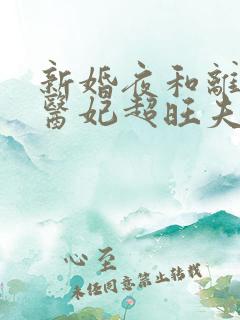 新婚夜和離
醫妃超旺夫
心至
未經同意禁止轉載